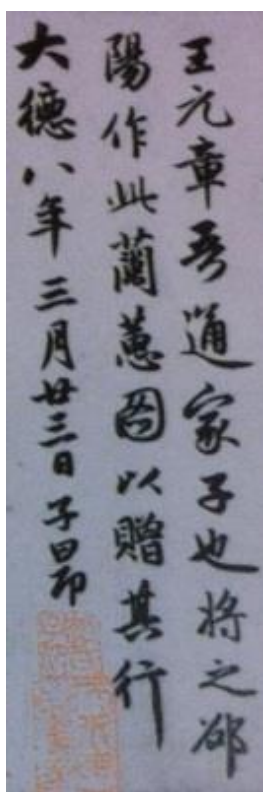 王元章吾通家子也将之邵
陽作此蘭蕙图以贈其行
大德八年三月廿三日子昂